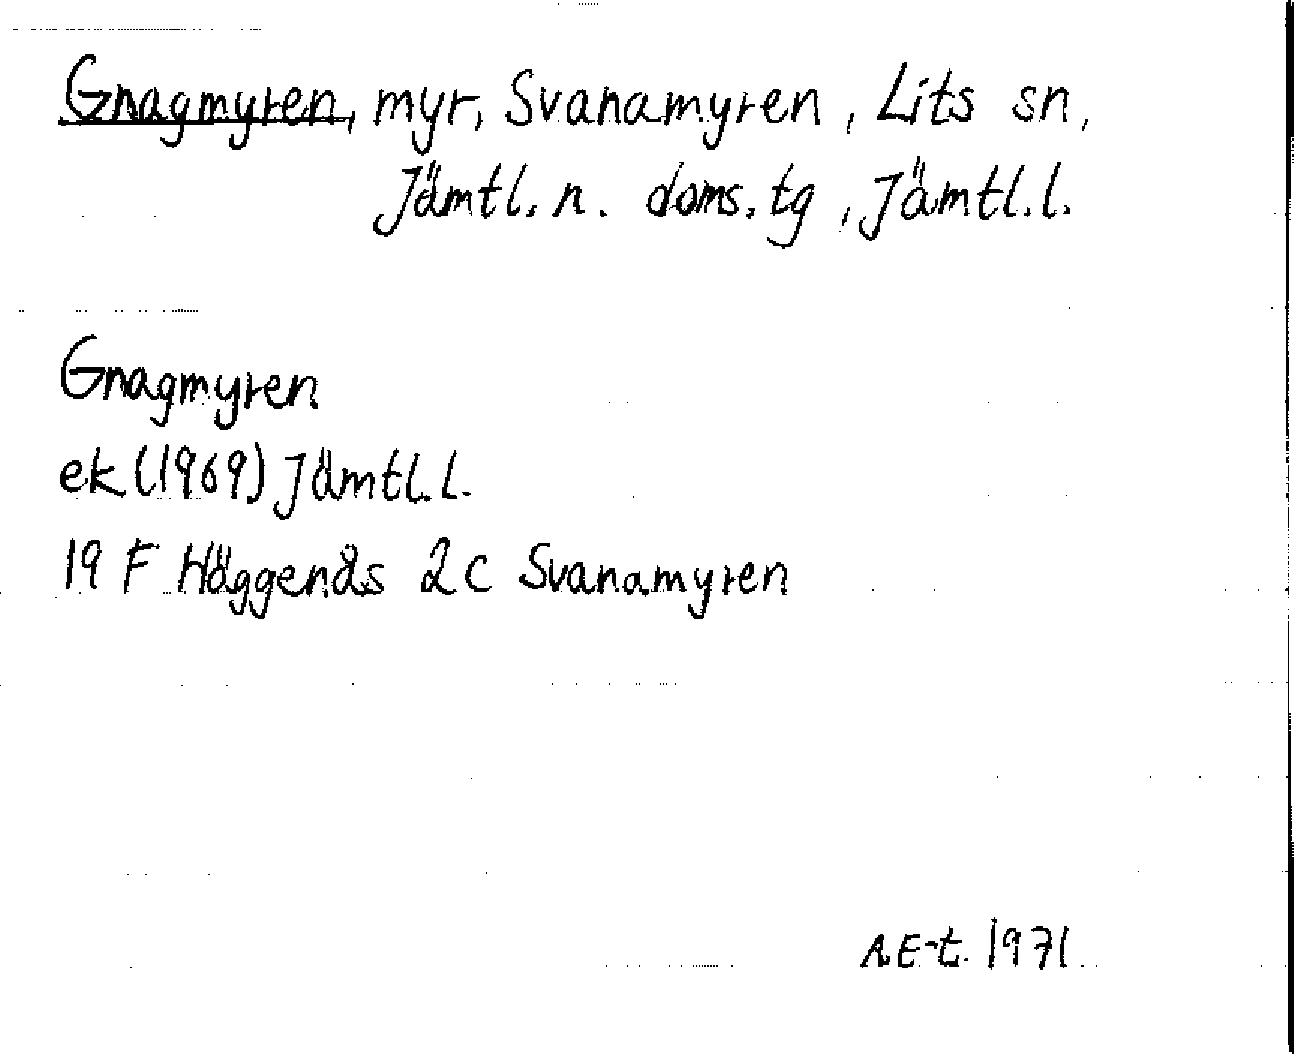 Gnagmyren, myr, Svanamyren, Lits sn,
Jämtl. n. doms. tg, Jämtl. l.
Gnagmyren
ek (1969) Jämtl. l.
19 F Häggenås 2c Svanamyren
A.E-t. 1971